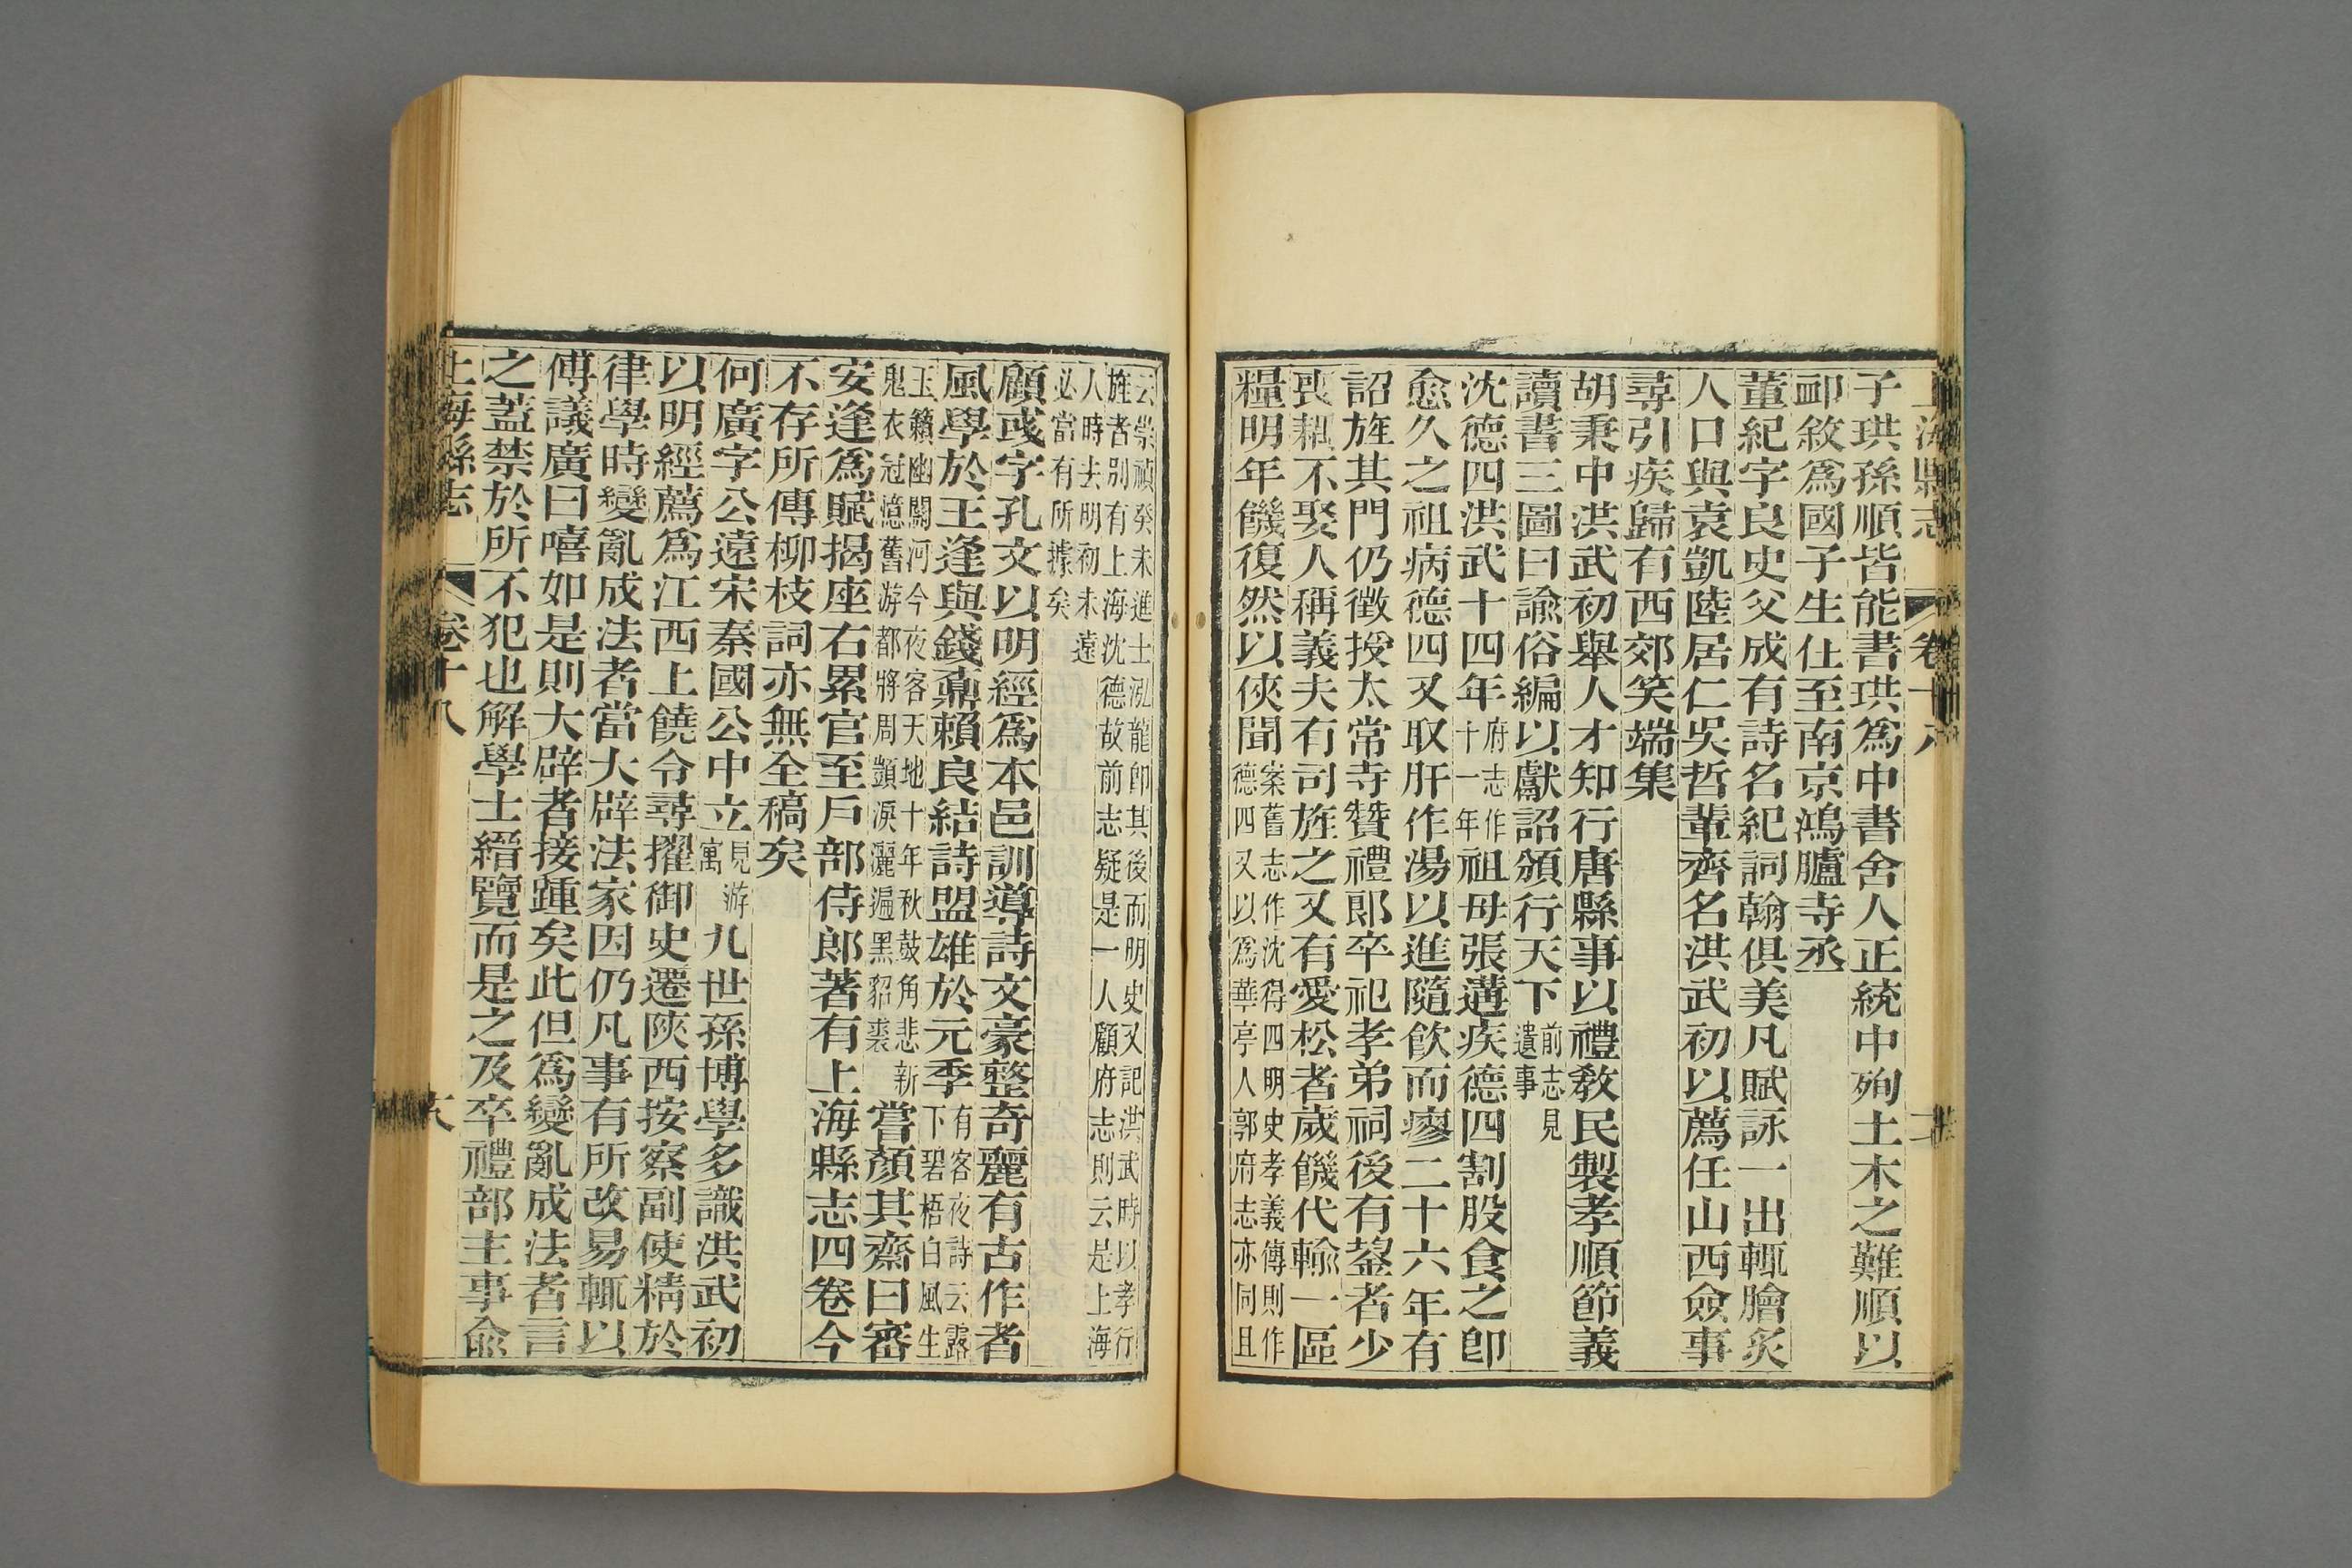 上海縣志 卷十八
子珙孫順皆能書珙爲中書舍人正統中殉土木之難順以
卹敘爲國子生仕至南京鴻臚寺丞
董紀字良史父成有詩名紀詞翰俱美凡賦詠一出輒膾炙
人口與袁凱陸居仁吳哲輩齊名洪武初以薦任山西僉事
尋引疾歸有西郊笑端集
胡秉中洪武初舉人才知行唐縣事以禮敎民製孝順節義
讀書三圖曰諭俗編以獻詔頒行天下前志見遺事
沈德四洪武十四年府志作十一年祖母張遘疾德四割股食之卽
愈久之祖病德四又取肝作湯以進隨飮而瘳二十六年有
詔旌其門仍徵授太常寺贊禮郎卒祀孝弟祠後有鋆者少
喪耦不娶人稱義夫有司旌之又有愛松者歲饑代輸一區
糧明年饑復然以俠聞案舊志作沈得四明史孝義傳則作德四又以爲華亭人郭府志亦同且
云崇禎癸未進士泓龍卽其後而明史又記洪武時以孝行
旌者別有上海沈德故前志疑是一人顧府志則云是上海
人時去明初未遠
必當有所據矣
顧彧字孔文以明經爲本邑訓導詩文豪整奇麗有古作者
風學於王逢與錢鼒賴良結詩盟雄於元季有客夜詩云露下碧梧白風生
玉籟幽關河今夜客天地十年秋鼓角悲新鬼衣冠憶舊游都將周顗淚灑遍黑貂裘嘗顏其齋曰審
安逢爲賦揭座右累官至戶部侍郎著有上海縣志四卷今
不存所傳柳枝詞亦無全稿矣
何廣字公遠宋秦國公中立見游寓九世孫博學多識洪武初
以明經薦爲江西上饒令尋擢御史遷陝西按察副使精於
律學時變亂成法者當大辟法家因仍凡事有所改易輒以
傅議廣曰嘻如是則大辟者接踵矣此但爲變亂成法者言
之蓋禁於所不犯也解學士縉覽而是之及卒禮部主事俞
上海縣志 卷十八